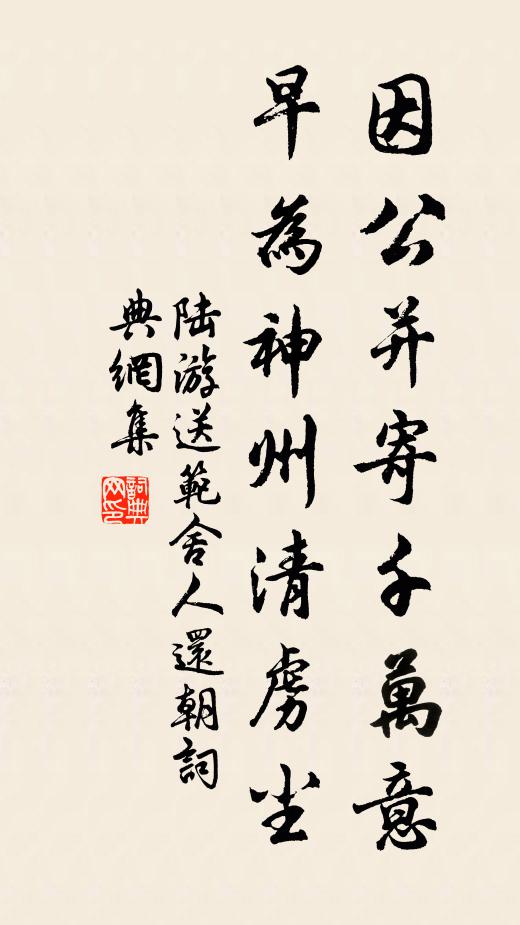 因公并寄千萬意
早為神州清虜尘
陸游送範舍人還朝詞
典網集
詞典网印